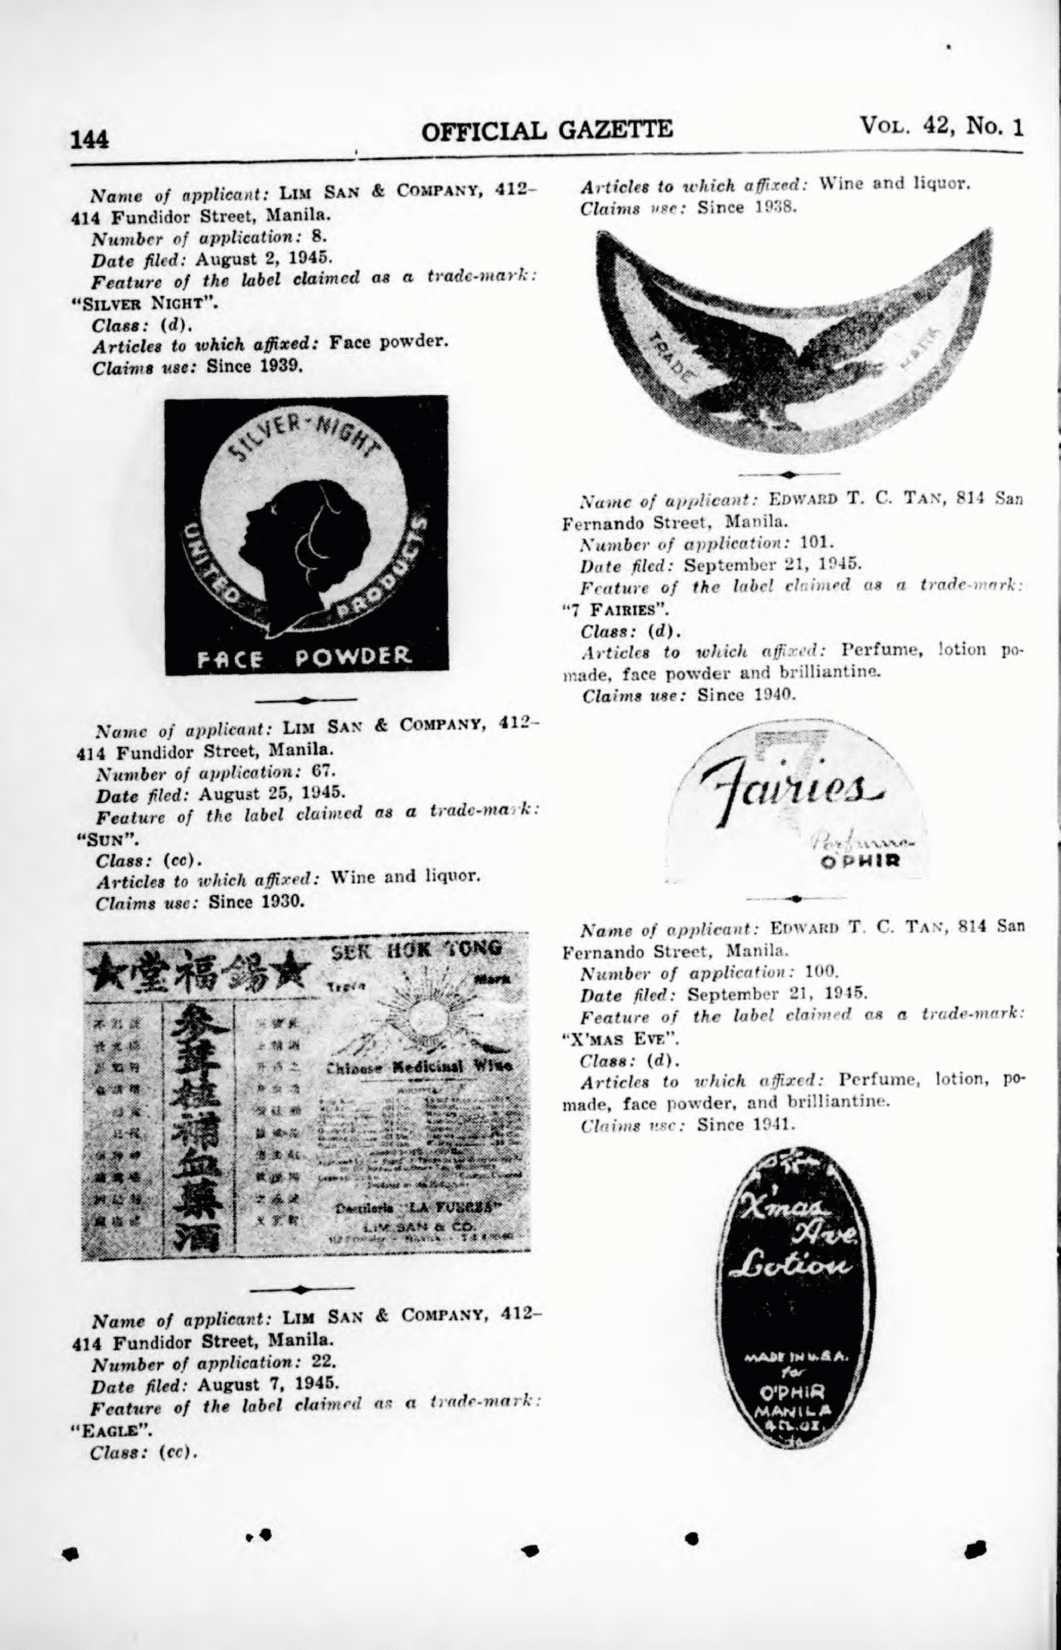 144
OFFICIAL GAZETTE
VOL. 42, No. 1
Name of applicant: LIM SAN & COMPANY, 412–
414 Fundidor Street, Manila.
Number of application: 8.
Date filed: August 2, 1945.
Feature of the label claimed as a trade-mark:
"SILVER NIGHT".
Class: (d).
Articles to which affixed: Face powder.
Claims use: Since 1939.
SILVER-NIGHT
UNITED PRODUCTS
FACE POWDER
Name of applicant: LIM SAN & COMPANY, 412–
414 Fundidor Street, Manila.
Number of application: 67.
Date filed: August 25, 1945.
Feature of the label claimed as a trade-mark:
"SUN".
Class: (cc).
Articles to which affixed: Wine and liquor.
Claims use: Since 1930.
堂福錫
參茸桂補血藥酒
SEK HOK TONG
Trade Mark
Chinese Medicinal Wine
Destileria "LA FUERZA"
LIM SAN & CO.
Name of applicant: LIM SAN & COMPANY, 412–
414 Fundidor Street, Manila.
Number of application: 22.
Date filed: August 7, 1945.
Feature of the label claimed as a trade-mark:
"EAGLE".
Class: (cc).
Articles to which affixed: Wine and liquor.
Claims use: Since 1938.
TRADE MARK
Name of applicant: EDWARD T. C. TAN, 814 San
Fernando Street, Manila.
Number of application: 101.
Date filed: September 21, 1945.
Feature of the label claimed as a trade-mark:
"7 FAIRIES".
Class: (d).
Articles to which affixed: Perfume, lotion po-
made, face powder and brilliantine.
Claims use: Since 1940.
7
Fairies
Perfume
O'PHIR
Name of applicant: EDWARD T. C. TAN, 814 San
Fernando Street, Manila.
Number of application: 100.
Date filed: September 21, 1945.
Feature of the label claimed as a trade-mark:
"X'MAS EVE".
Class: (d).
Articles to which affixed: Perfume, lotion, po-
made, face powder, and brilliantine.
Claims use: Since 1941.
X'mas
Ave
Lotion
MADE IN U.S.A.
for
O'PHIR
MANILA
4 FL. OZ.